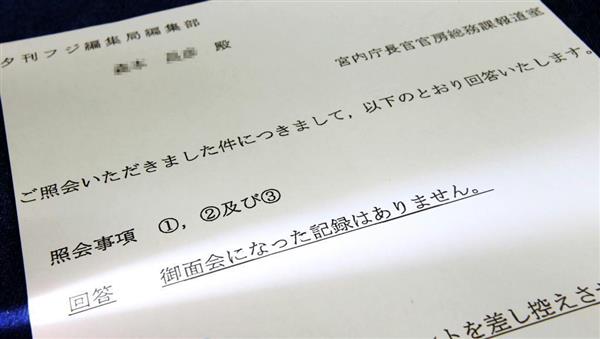 夕刊フジ編集局編集部
殿
宮内庁長官官房総務課報道室
ご照会いただきました件につきまして，以下のとおり回答いたします。
照会事項　①，②及び③
回答　御面会になった記録はありません。
トを差し控えさ